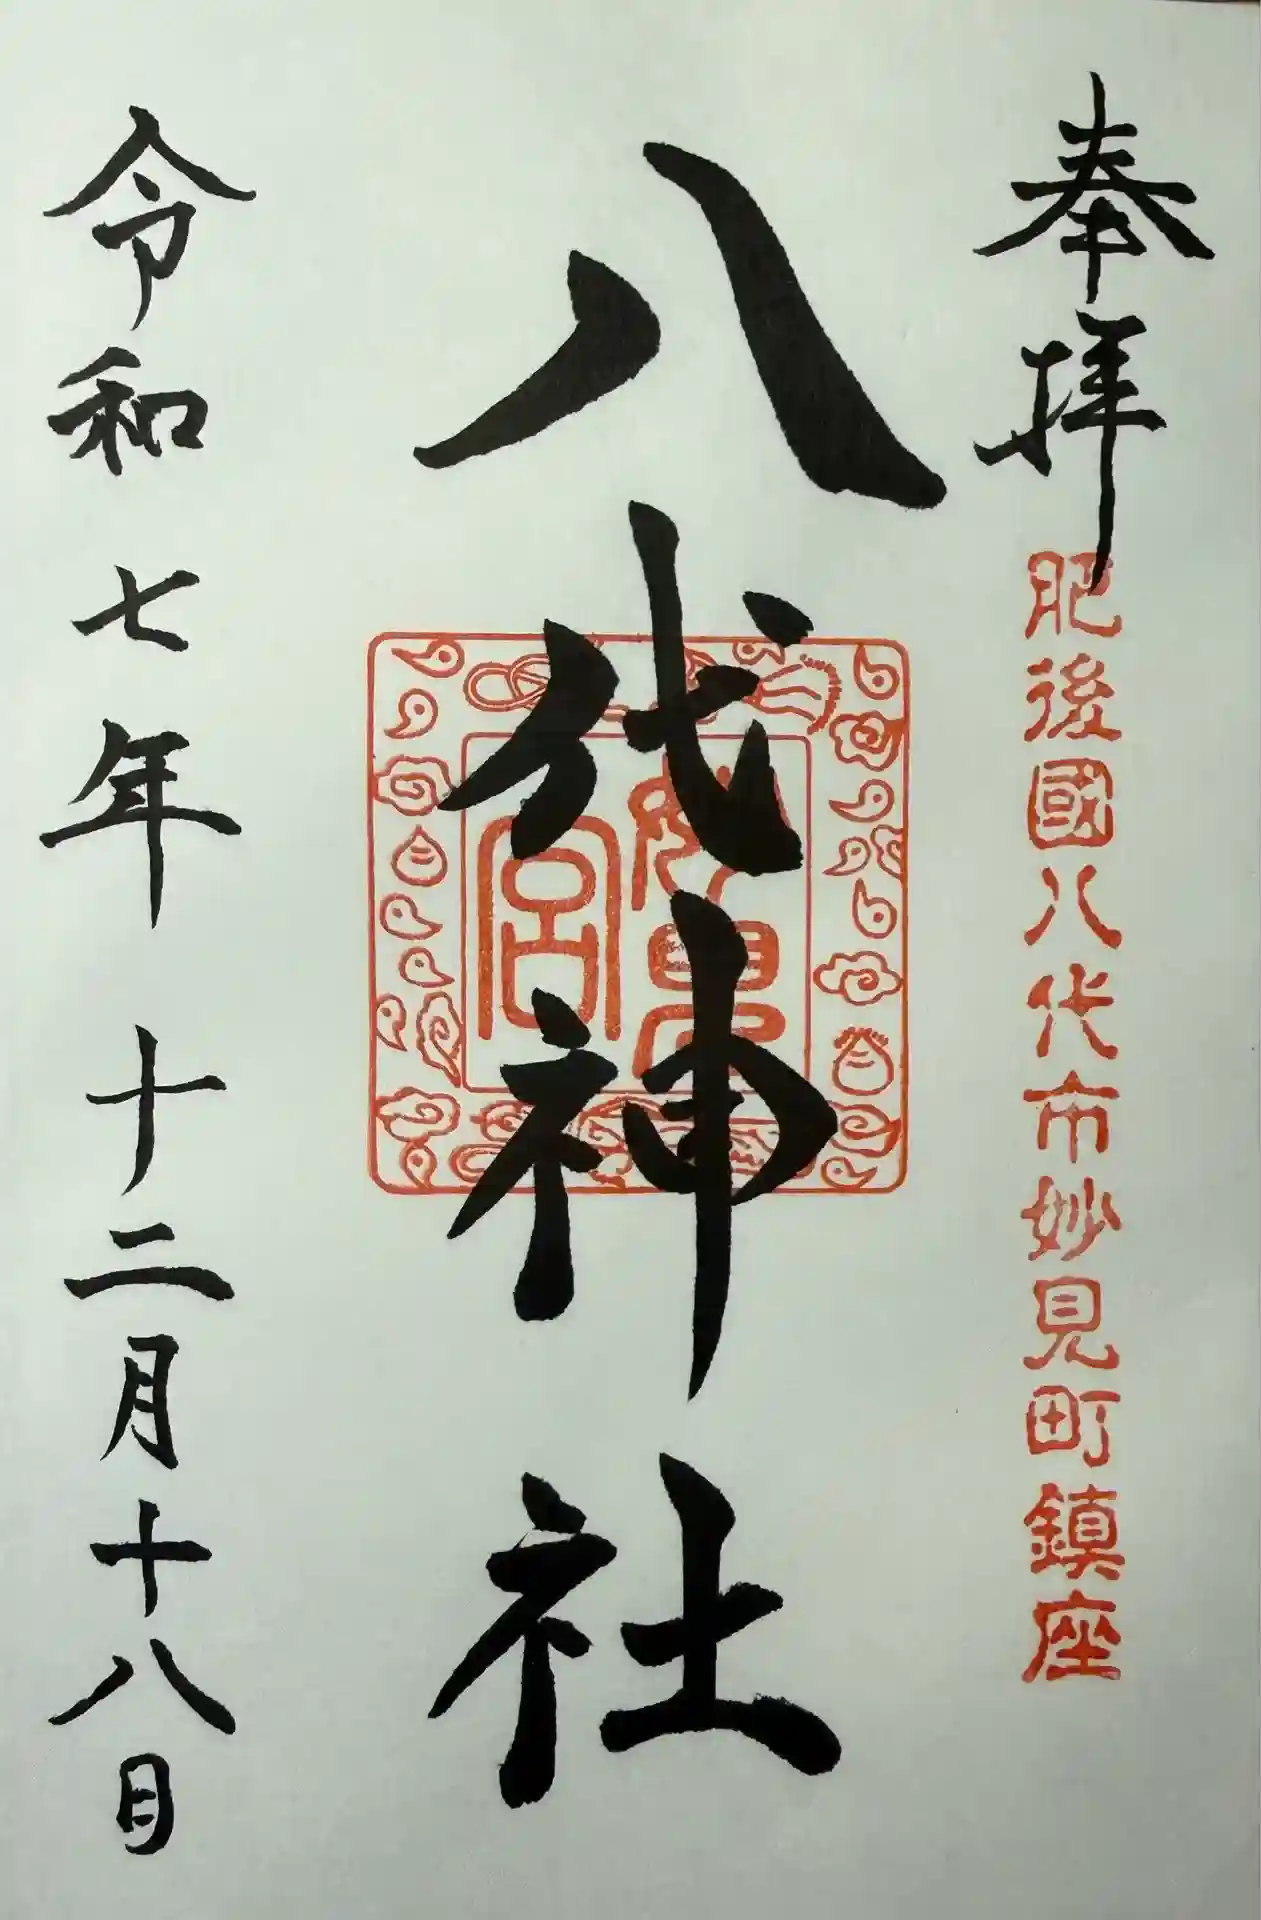 奉拝
肥後國八代市妙見町鎮座
八代神社
妙見宮
令和七年十二月十八日